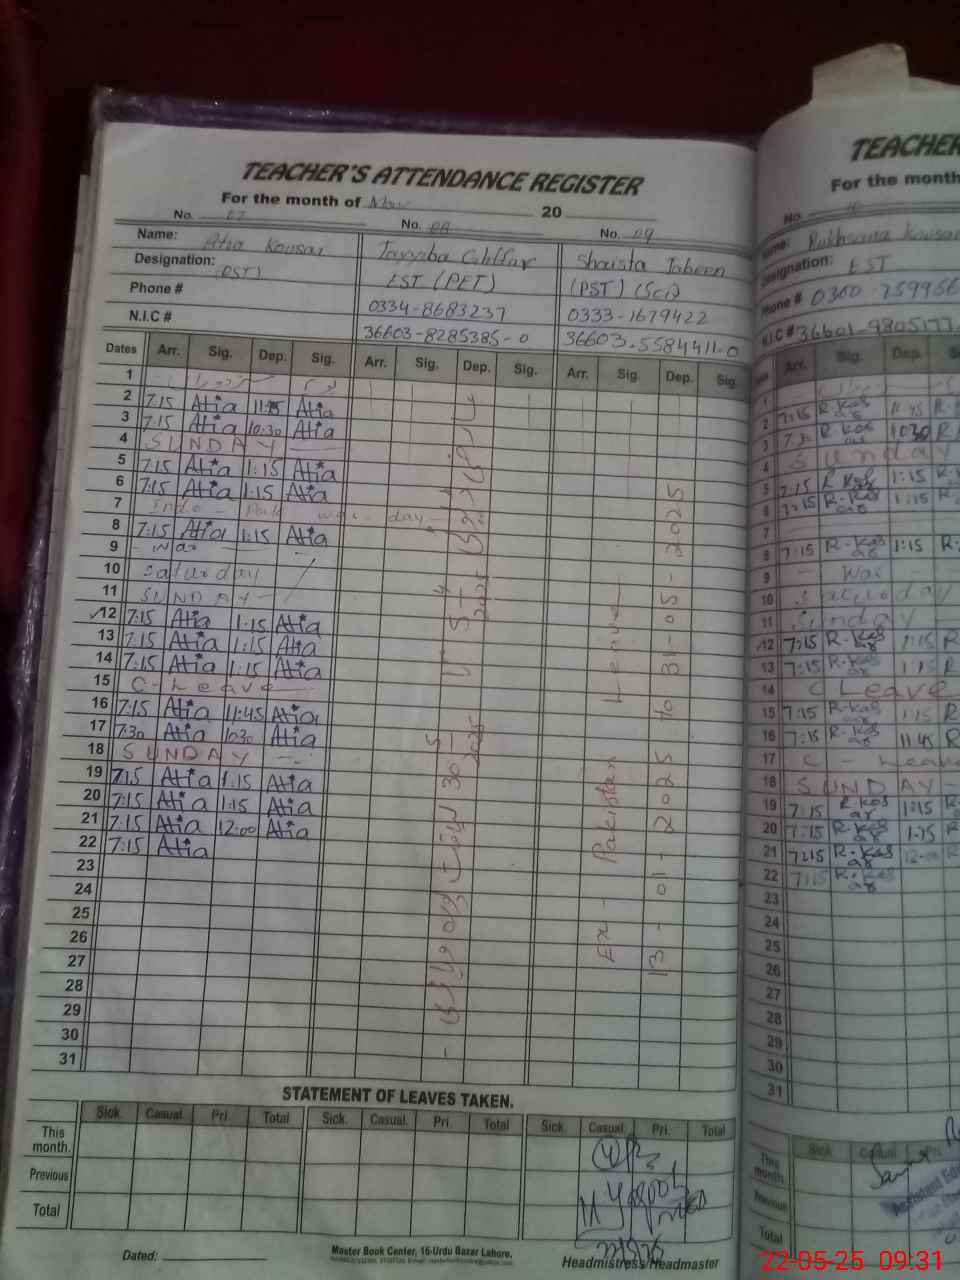 TEACHER'S ATTENDANCE REGISTER
For the month of May 20
No. 07 No. 08 No. 09
Name: Atia Kousar Tayyba Ghffar Shaista Jabeen
Designation: (PST) EST (PET) (PST) (Sci)
Phone # 0334-8683237 0333-1679422
N.I.C # 36603-8285385-0 36603-5584411-0
Dates Arr. Sig. Dep. Sig. Arr. Sig. Dep. Sig. Arr. Sig. Dep. Sig.
1
2 7:15 Atia 11:45 Atia
3 7:15 Atia 10:30 Atia
4 SUNDAY
5 7:15 Atia 1:15 Atia
6 7:15 Atia 1:15 Atia
7 Indo - Pak war day
8 7:15 Atia 1:15 Atia
9 - War
10 Saturday
11 SUNDAY
12 7:15 Atia 1:15 Atia
13 7:15 Atia 1:15 Atia
14 7:15 Atia 1:15 Atia
15 C-Leave
16 7:15 Atia 11:45 Atia
17 7:30 Atia 10:30 Atia
18 SUNDAY
19 7:15 Atia 1:15 Atia
20 7:15 Atia 1:15 Atia
21 7:15 Atia 12:00 Atia
22 7:15 Atia
23
24
25
26
27
28
29
30
31
Ex - Pakistan Leave
13-01-2025 to 31-05-2025
STATEMENT OF LEAVES TAKEN.
Sick. Casual. Pri. Total Sick. Casual. Pri. Total Sick. Casual. Pri. Total
This month.
Previous
Total
Dated:
Master Book Center, 16-Urdu Bazar Lahore.
Headmistress/Headmaster
TEACHER
For the month
No. 10
Name: Rukhsana Kousar
Designation: EST
Phone # 0300-759956
N.I.C # 36601-9805177-
Arr. Sig. Dep.
1
2 7:15 R.Kos ar 11:45
3 7:30 R.Kos ar 10:30
4 Sunday
5 7:15 R.Kos ar 1:15
6 7:15 R.Kos ar 1:15
7
8 7:15 R.Kos ar 1:15
9 - War -
10 Saturday
11 Sunday
12 7:15 R.Kos ar 1:15
13 7:15 R.Kos ar 1:15
14 C Leave
15 7:15 R.Kos ar 1:15
16 7:15 R.Kos ar 11:45
17 C - Leave
18 SUNDAY
19 7:15 R.Kos ar 1:15
20 7:15 R.Kos ar 1:15
21 7:15 R.Kos ar 12:00
22 7:15 R.Kos ar
23
24
25
26
27
28
29
30
31
Sick Casual Pri.
This month
Previous
Total
22-05-25 09:31